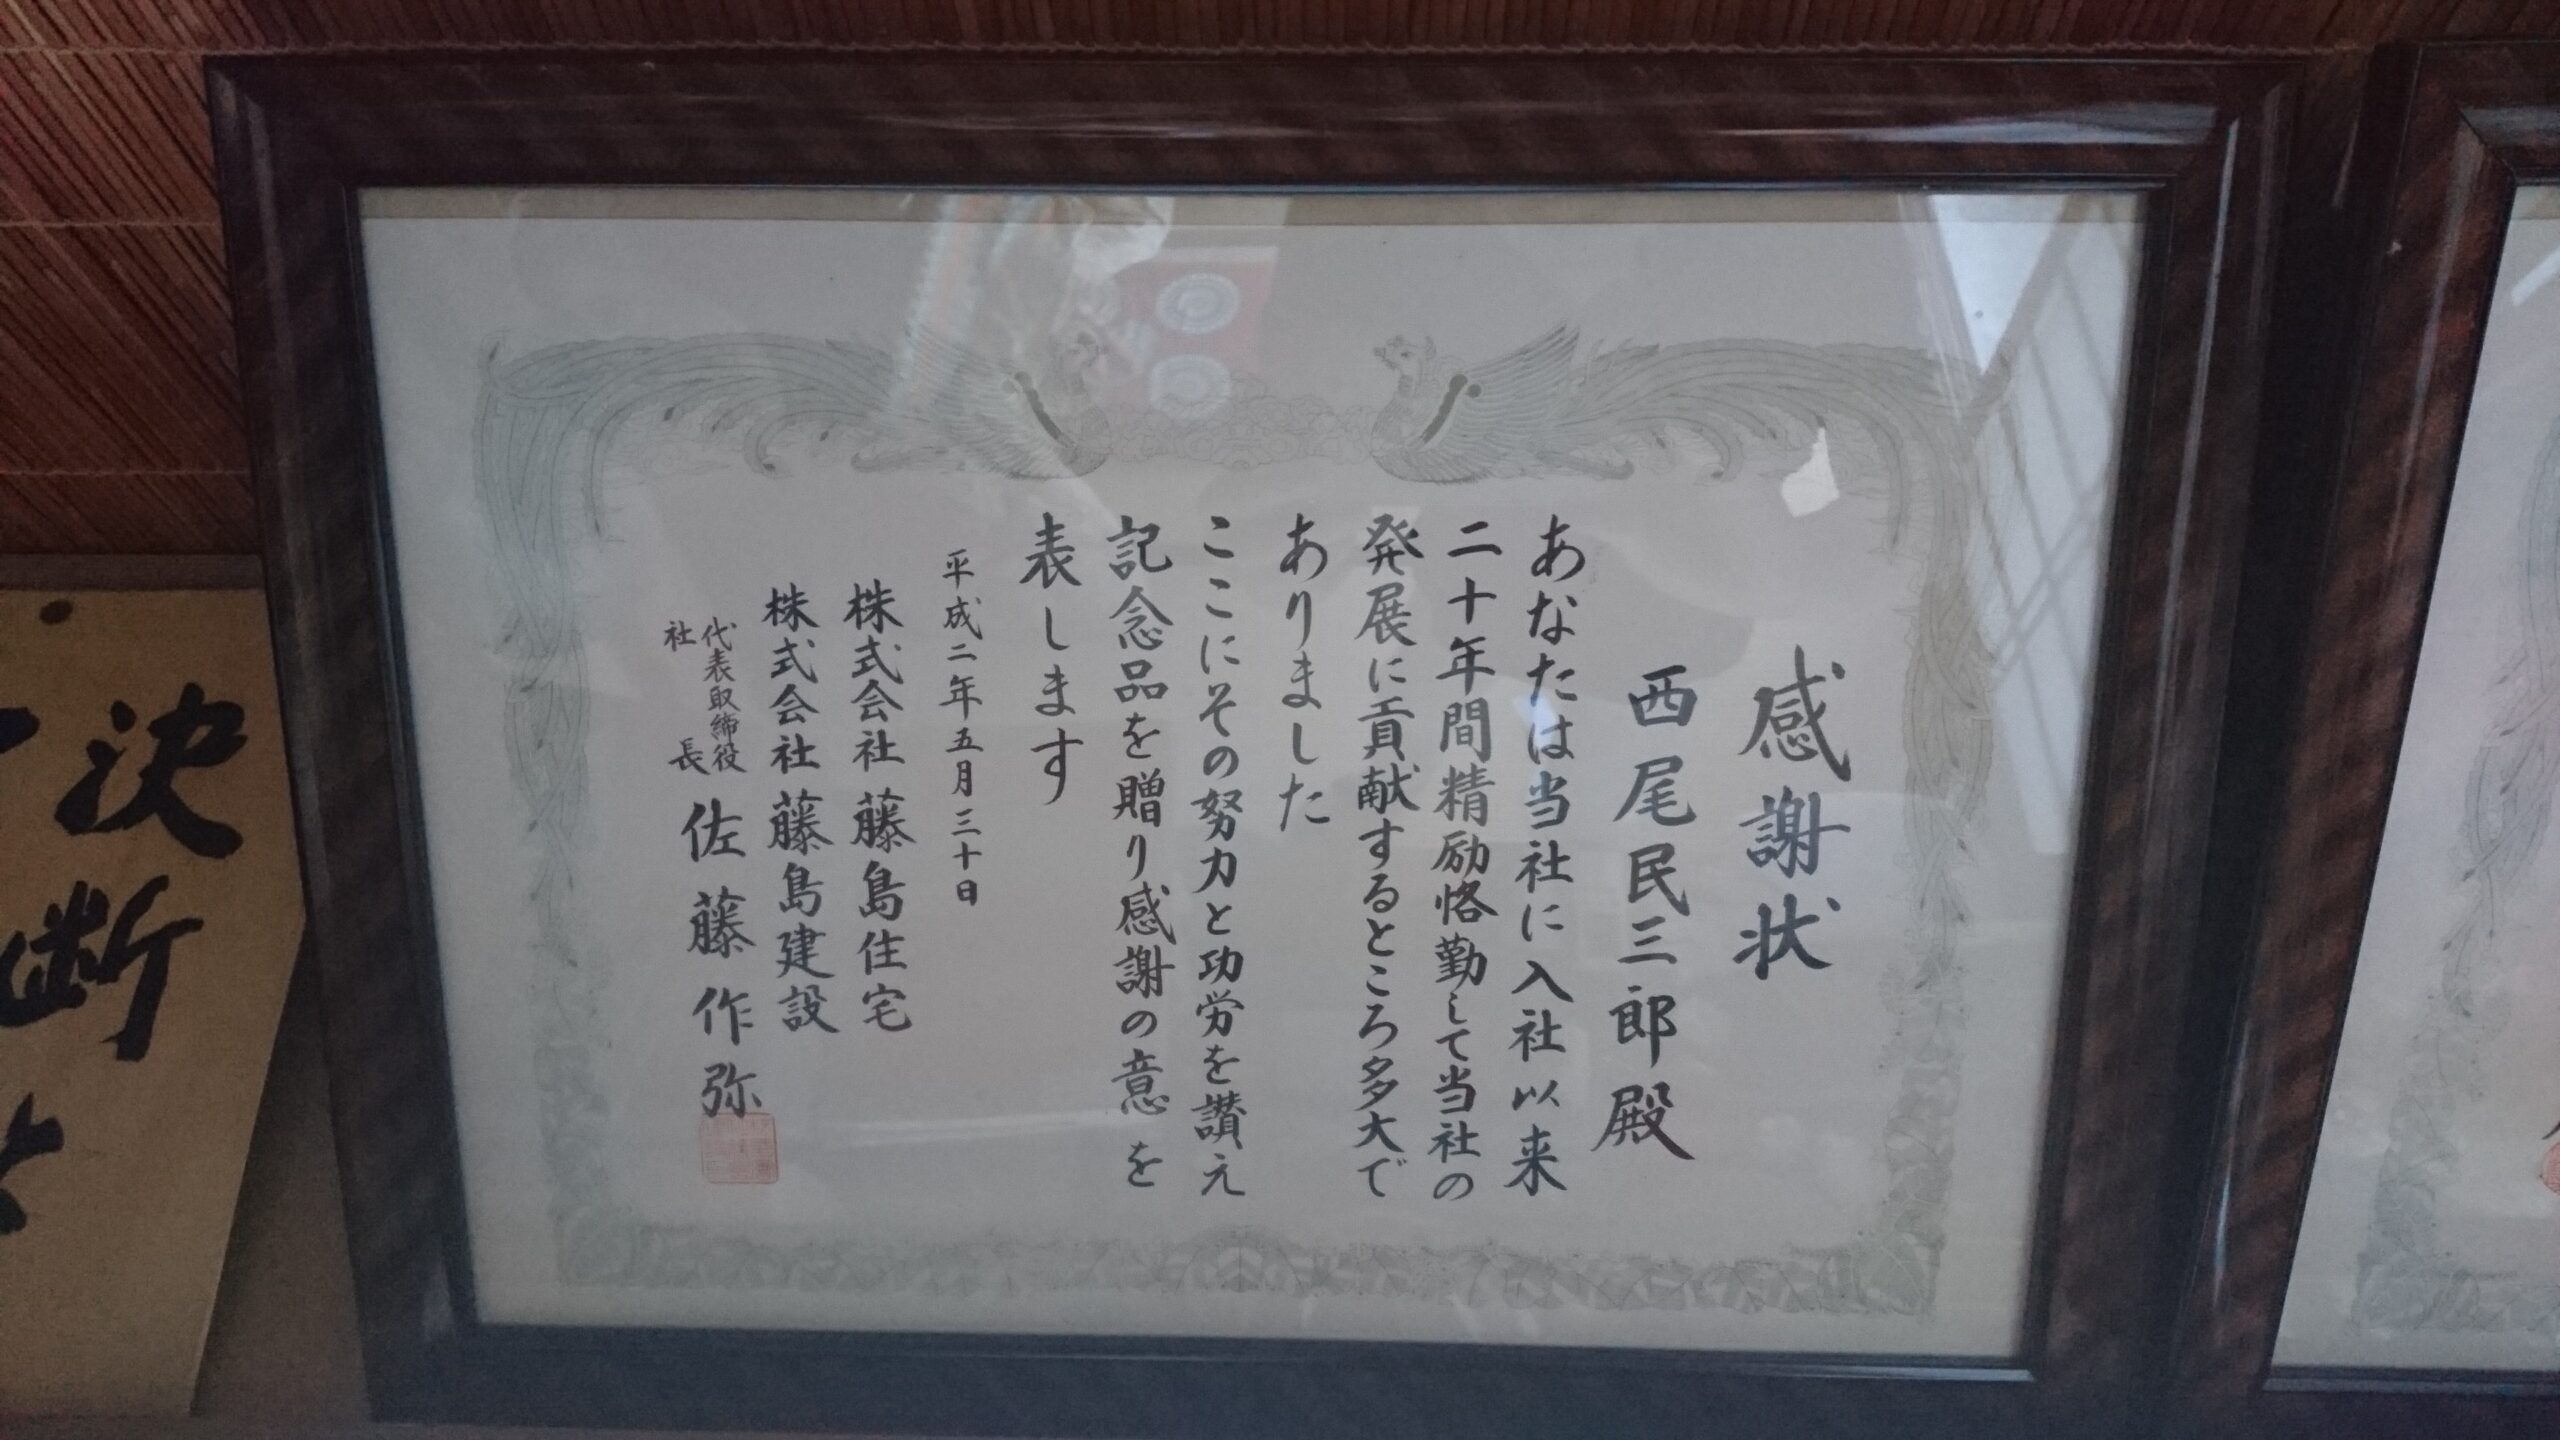 感謝状
西尾民三郎殿
あなたは当社に入社以来
二十年間精励恪勤して当社の
発展に貢献するところ多大で
ありました
ここにその努力と功労を讃え
記念品を贈り感謝の意を
表します
平成二年五月三十日
株式会社藤島住宅
株式会社藤島建設
代表取締役
社長
佐藤作弥
決断